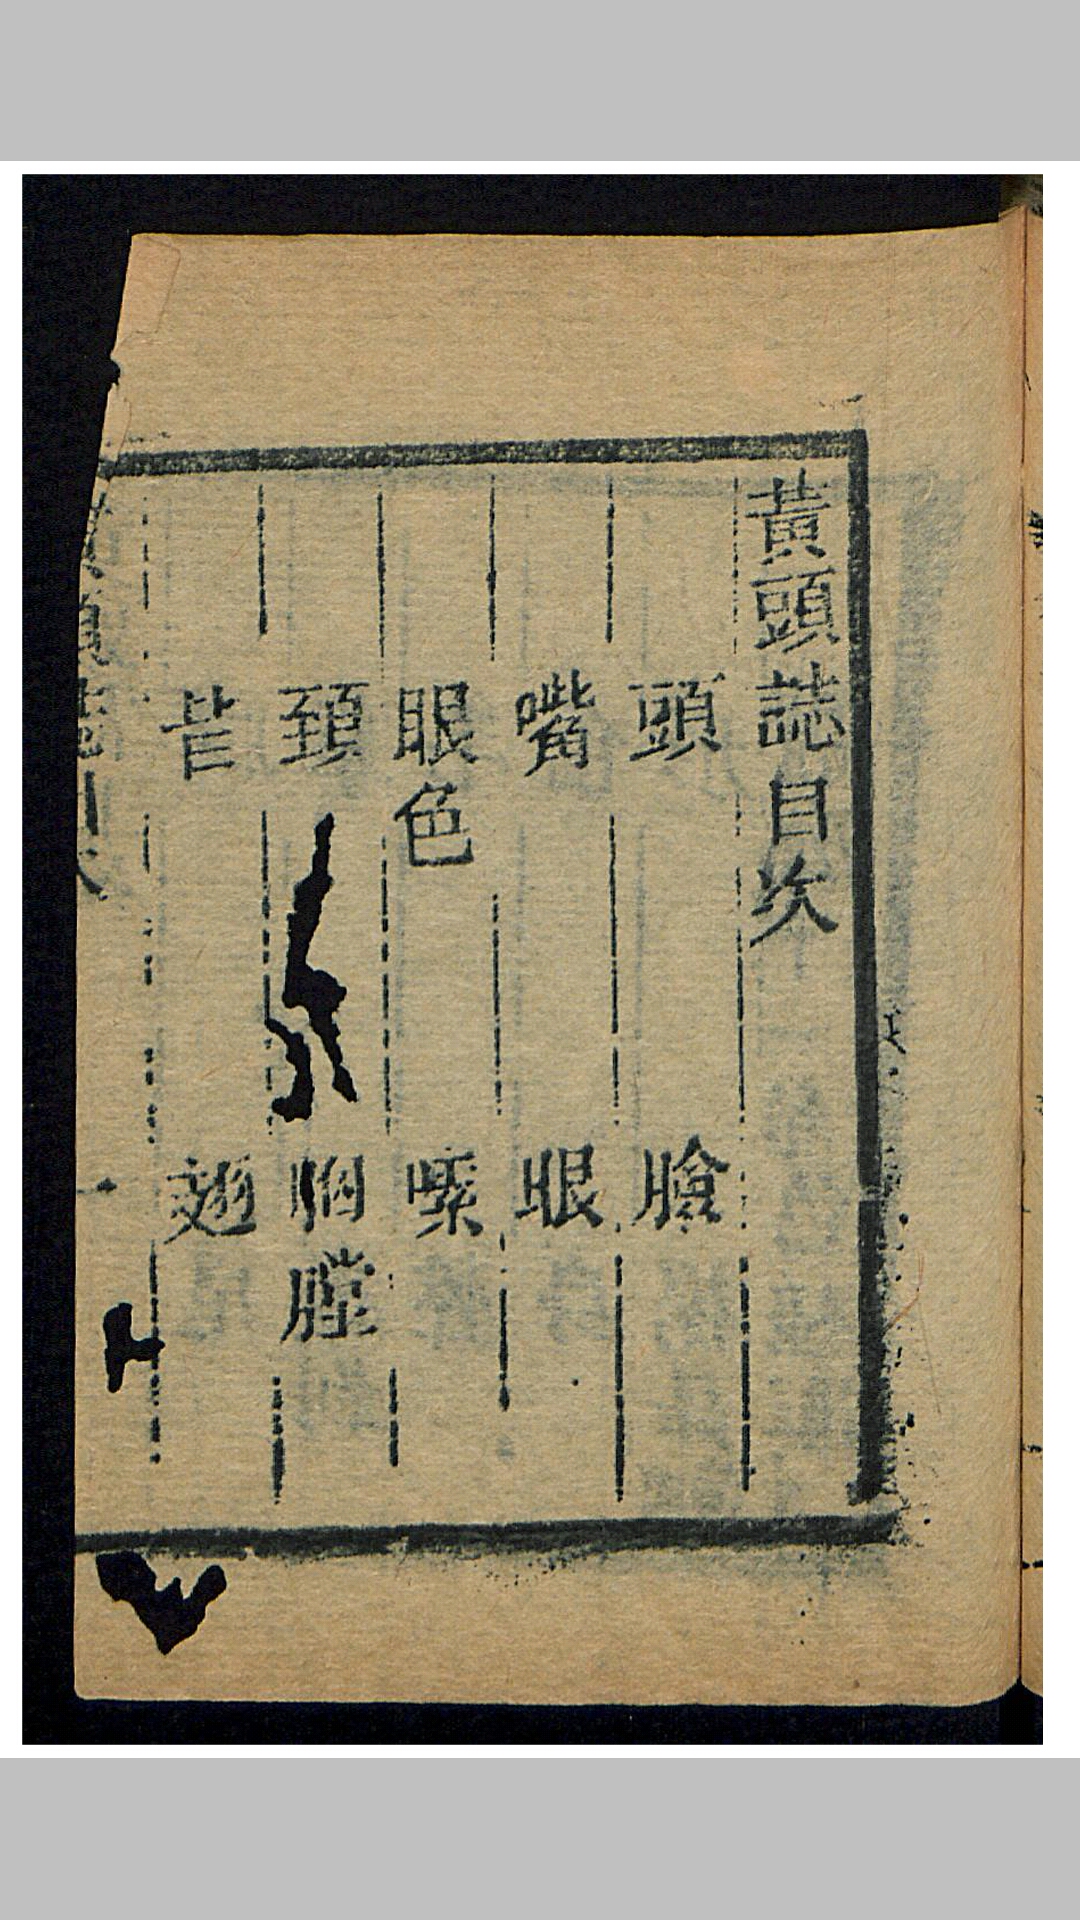 黃頭誌目次
頭 臉
嘴 眼
眼色 嗉
頚 胸膛
背 翅